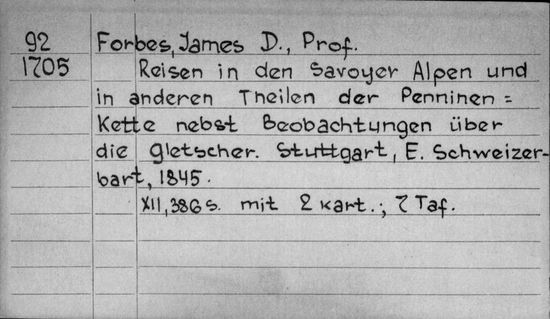 92 Forbes, James D., Prof.
1705 Reisen in den Savoyer Alpen und
in anderen Theilen der Penninen=
Kette nebst Beobachtungen über
die Gletscher. Stuttgart, E. Schweizer-
bart, 1845.
XII, 386 s. mit 2 Kart.; 7 Taf.